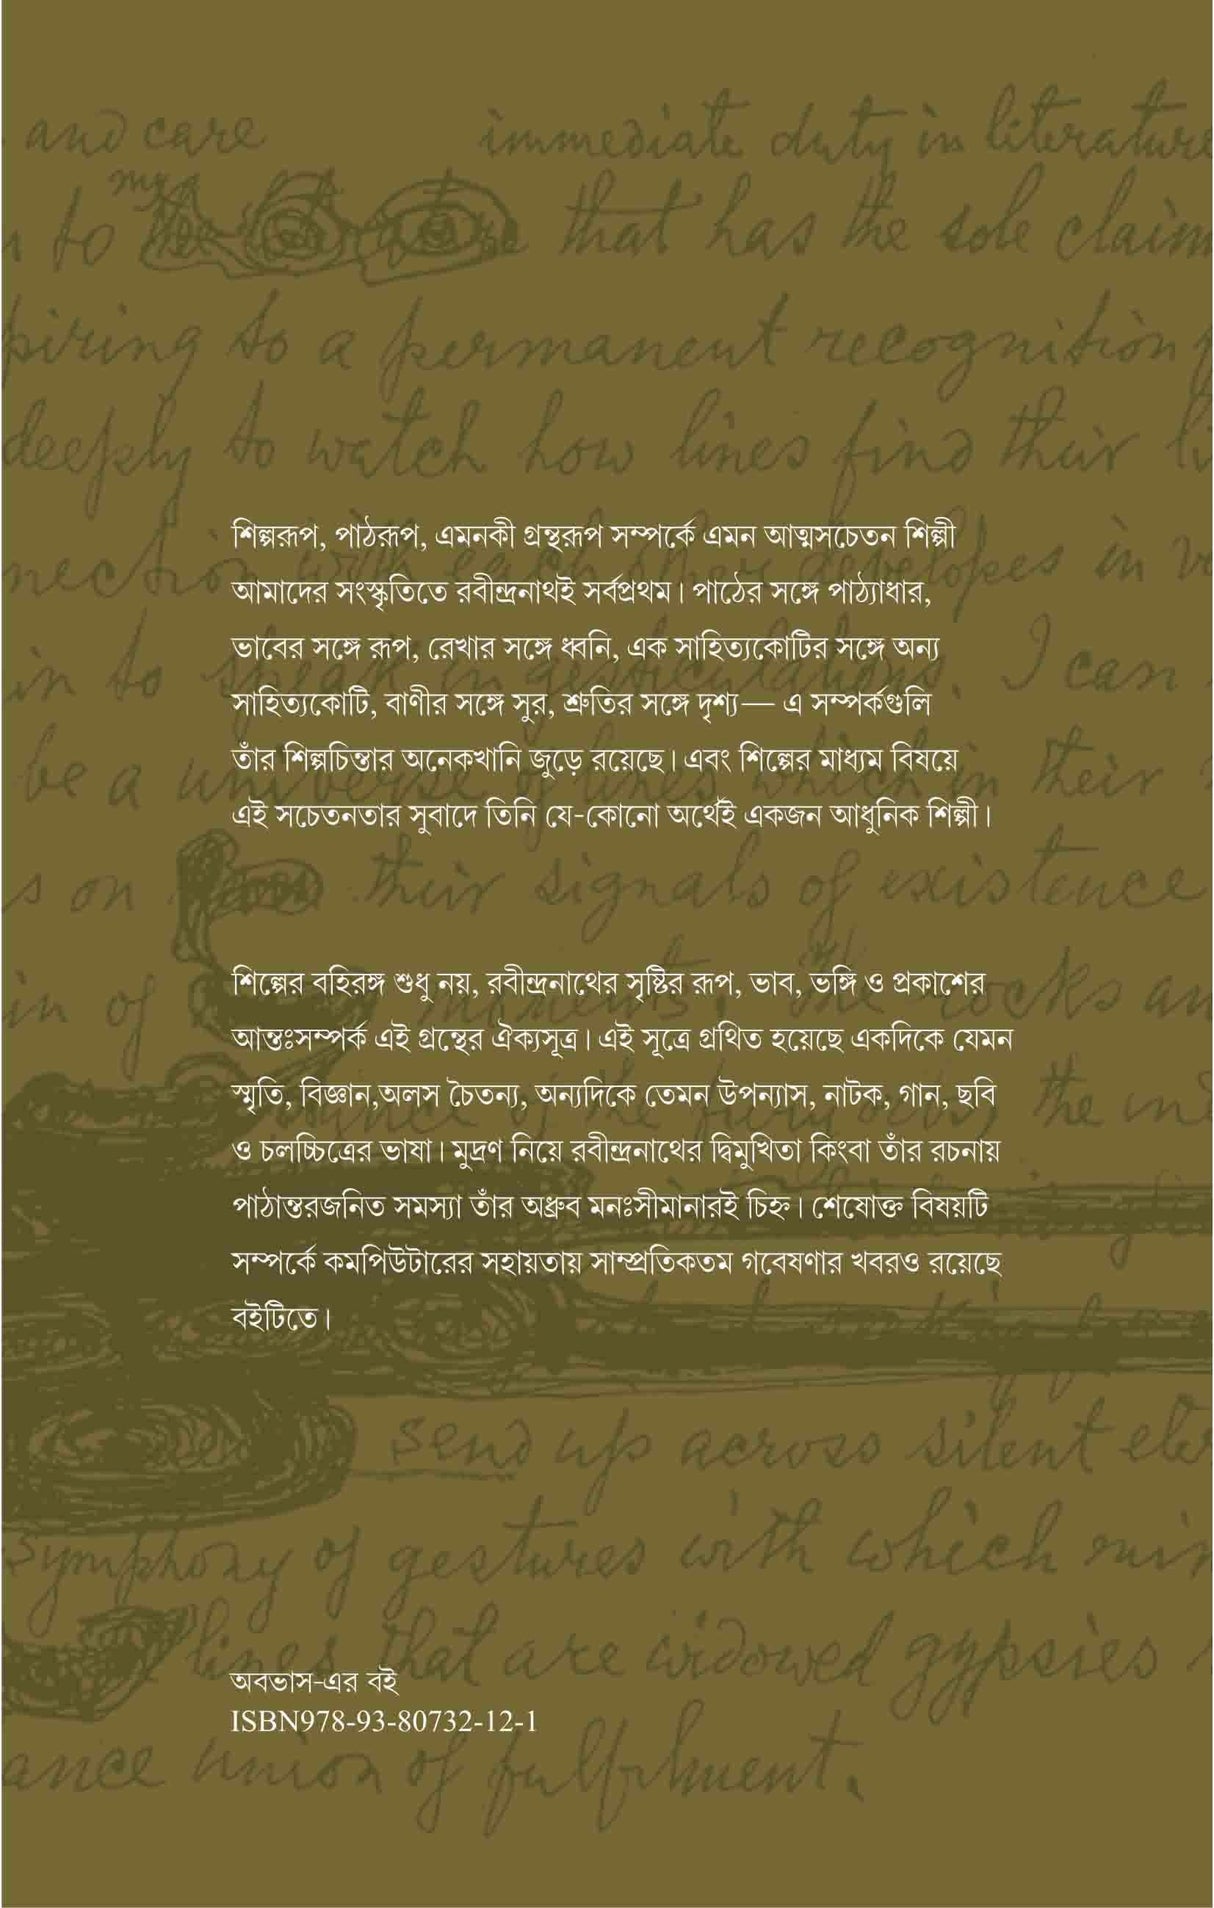 and care immediate duty in literature
to that has the sole claim
piring to a permanent recognition
deeply to watch how lines find their
শিল্পরূপ, পাঠরূপ, এমনকী গ্রন্থরূপ সম্পর্কে এমন আত্মসচেতন শিল্পী
আমাদের সংস্কৃতিতে রবীন্দ্রনাথই সর্বপ্রথম। পাঠের সঙ্গে পাঠ্যাধার,
ভাবের সঙ্গে রূপ, রেখার সঙ্গে ধ্বনি, এক সাহিত্যকোটির সঙ্গে অন্য
সাহিত্যকোটি, বাণীর সঙ্গে সুর, শ্রুতির সঙ্গে দৃশ্য— এ সম্পর্কগুলি
তাঁর শিল্পচিন্তার অনেকখানি জুড়ে রয়েছে। এবং শিল্পের মাধ্যম বিষয়ে
এই সচেতনতার সুবাদে তিনি যে-কোনো অর্থেই একজন আধুনিক শিল্পী।
s on their signals of existence
শিল্পের বহিরঙ্গ শুধু নয়, রবীন্দ্রনাথের সৃষ্টির রূপ, ভাব, ভঙ্গি ও প্রকাশের
আন্তঃসম্পর্ক এই গ্রন্থের ঐক্যসূত্র। এই সূত্রে গ্রথিত হয়েছে একদিকে যেমন
স্মৃতি, বিজ্ঞান,অলস চৈতন্য, অন্যদিকে তেমন উপন্যাস, নাটক, গান, ছবি
ও চলচ্চিত্রের ভাষা। মুদ্রণ নিয়ে রবীন্দ্রনাথের দ্বিমুখিতা কিংবা তাঁর রচনায়
পাঠান্তরজনিত সমস্যা তাঁর অধ্রুব মনঃসীমানারই চিহ্ন। শেষোক্ত বিষয়টি
সম্পর্কে কমপিউটারের সহায়তায় সাম্প্রতিকতম গবেষণার খবরও রয়েছে
বইটিতে।
send up across silent
symphony of gestures with which
lines that are widowed gypsies
অবভাস-এর বই
ISBN978-93-80732-12-1
ance union of fulfilment.